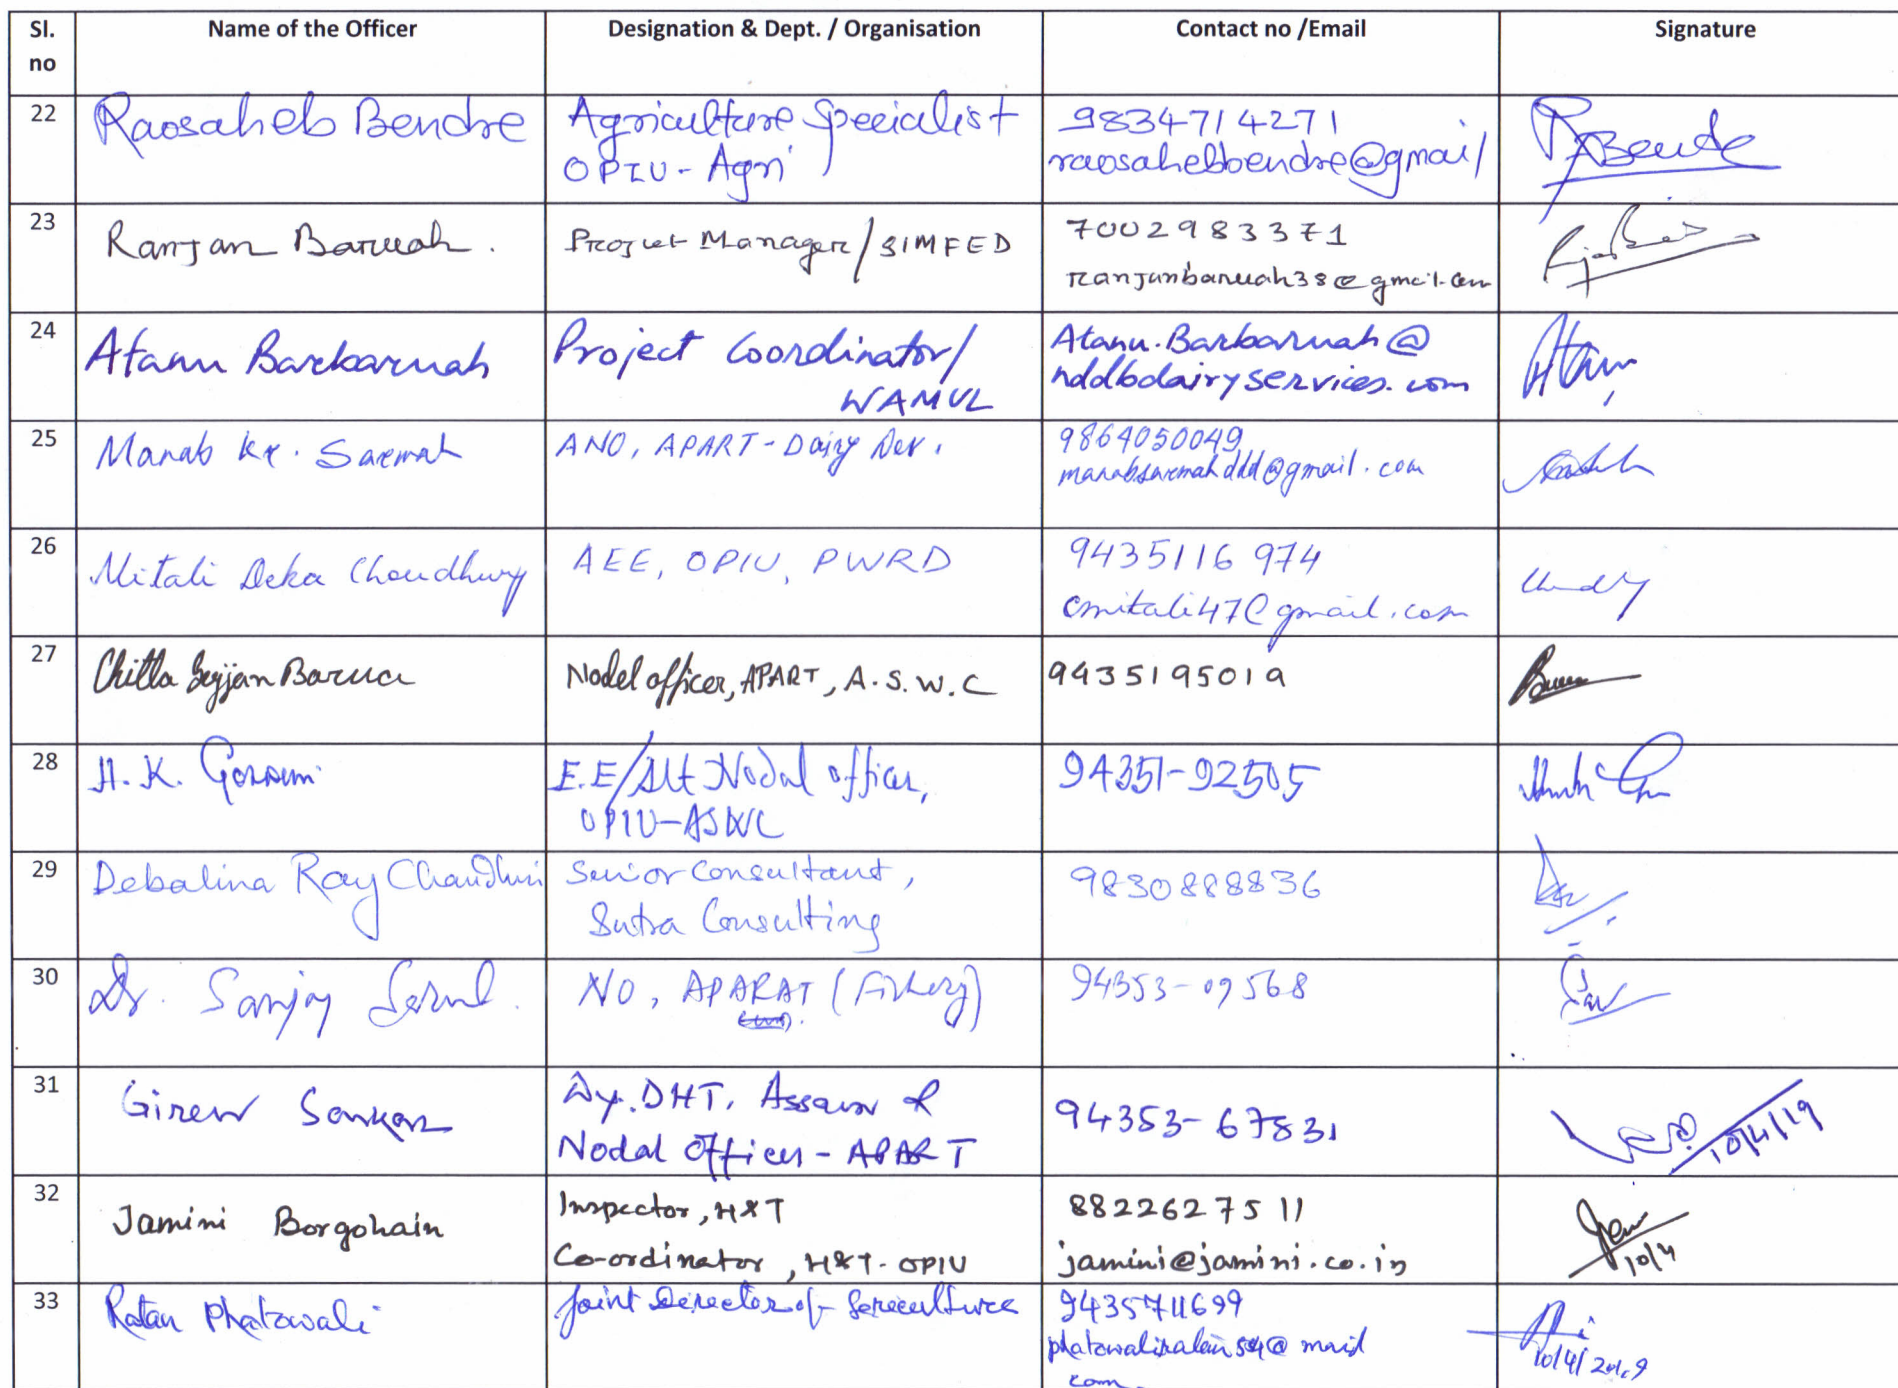 Sl. no Name of the Officer Designation & Dept. / Organisation Contact no /Email Signature
22 Raosaheb Bendre Agriculture Specialist 9834714271
OPIU - Agri raosahebbendre@gmail
23 Ranjan Baruah. Project Manager/SIMFED 7002983371
ranjanbaruah38@gmail.com
24 Atanu Barbaruah Project Coordinator/ Atanu.Barbaruah@
WAMUL nddbdairyservices.com
25 Manab Kr. Sarmah ANO, APART - Dairy Dev. 9864050049
manabsarmahddd@gmail.com
26 Mitali Deka Choudhury AEE, OPIU, PWRD 9435116 974
cmitali47@gmail.com
27 Barua Nodel officer, APART, A.S.W.C 9435195019
28 H.K. Goswami E.E/Alt Nodal officer, 94351-92505
OPIU-ASWC
29 Debalina Ray Chaudhuri Senior Consultant, 9830888836
Sutra Consulting
30 Dr. Sanjoy NO, APARAT (Fishery) 94353-09568
31 Giren Sarkar Dy. DHT, Assam & 94353-67831
Nodal Officer - APART 10/4/19
32 Jamini Borgohain Inspector, H&T 8822627511
Co-ordinator, H&T-OPIU jamini@jamini.co.in 10/4
33 Ratan Phatowali Joint Director of Sericulture 9435711699
10/4/2019
com